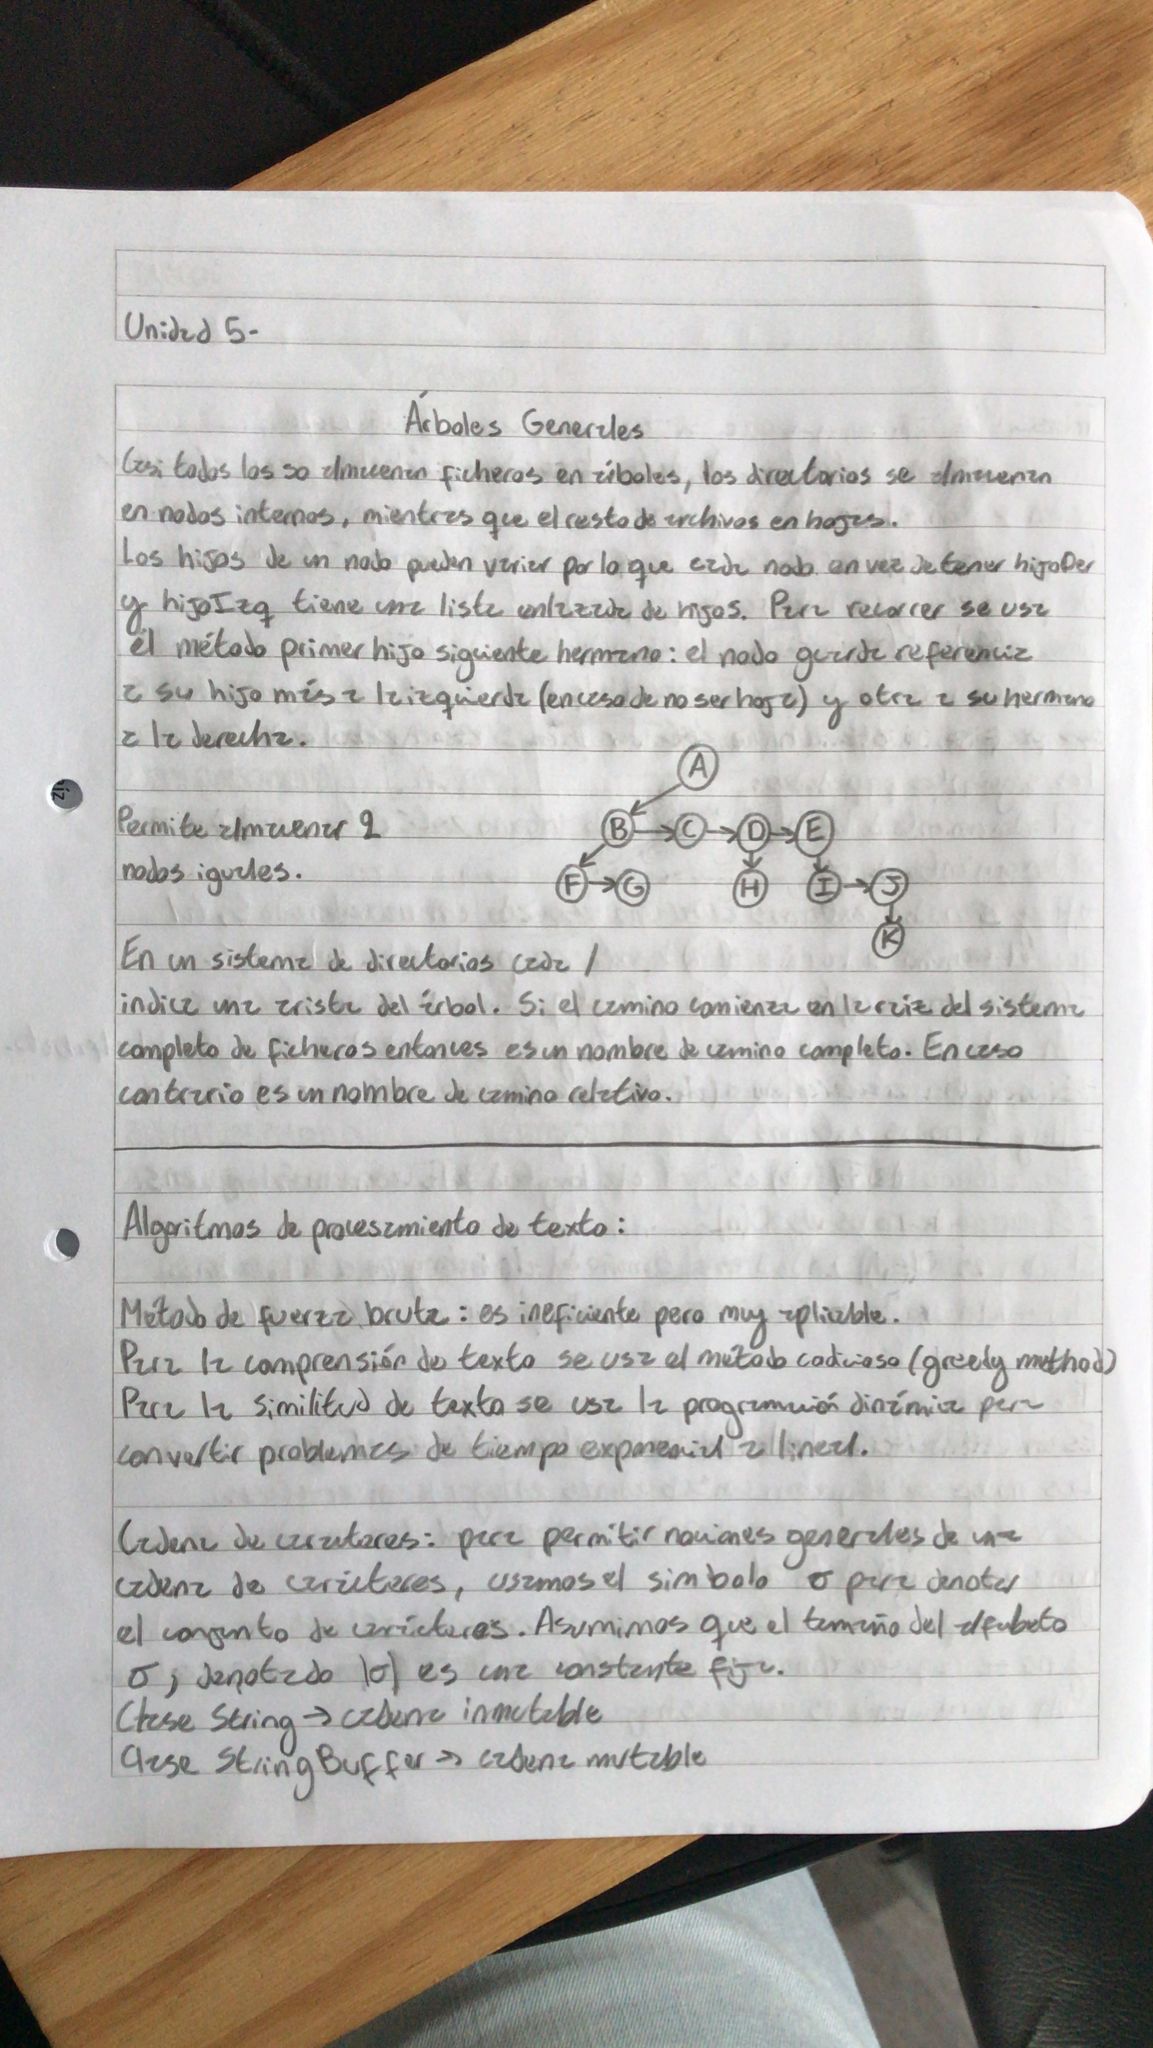 Unidad 5-
Árboles Generales
Casi todos los so almacenan ficheros en árboles, los directorios se almacenan
en nodos internos, mientras que el resto de archivos en hojas.
Los hijos de un nodo pueden variar por lo que cada nodo en vez de tener hijoDer
y hijoIzq tiene una lista enlazada de hijos. Para recorrer se usa
él método primer hijo siguiente hermano: el nodo guarda referencia
a su hijo más a la izquierda (en caso de no ser hoja) y otra a su hermano
a la derecha.
A
Permite almacenar 2
B C D E
nodos iguales.
F G H I J
K
En un sistema de directorios cada /
indica una arista del árbol. Si el camino comienza en la raiz del sistema
completo de ficheros entonces es un nombre de camino completo. En caso
contrario es un nombre de camino relativo.
Algoritmos de procesamiento de texto:
Método de fuerza bruta: es ineficiente pero muy aplicable.
Para la comprensión de texto se usa el método codicioso (greedy method)
Para la similitud de texto se usa la programación dinámica para
convertir problemas de tiempo exponencial a lineal.
Cadena de caracteres: para permitir nociones generales de una
cadena de carácteres, usamos el simbolo σ para denotar
el conjunto de carácteres. Asumimos que el tamaño del alfabeto
σ, denotado |σ| es una constante fija.
Clase String → cadena inmutable
Clase StringBuffer → cadena mutable